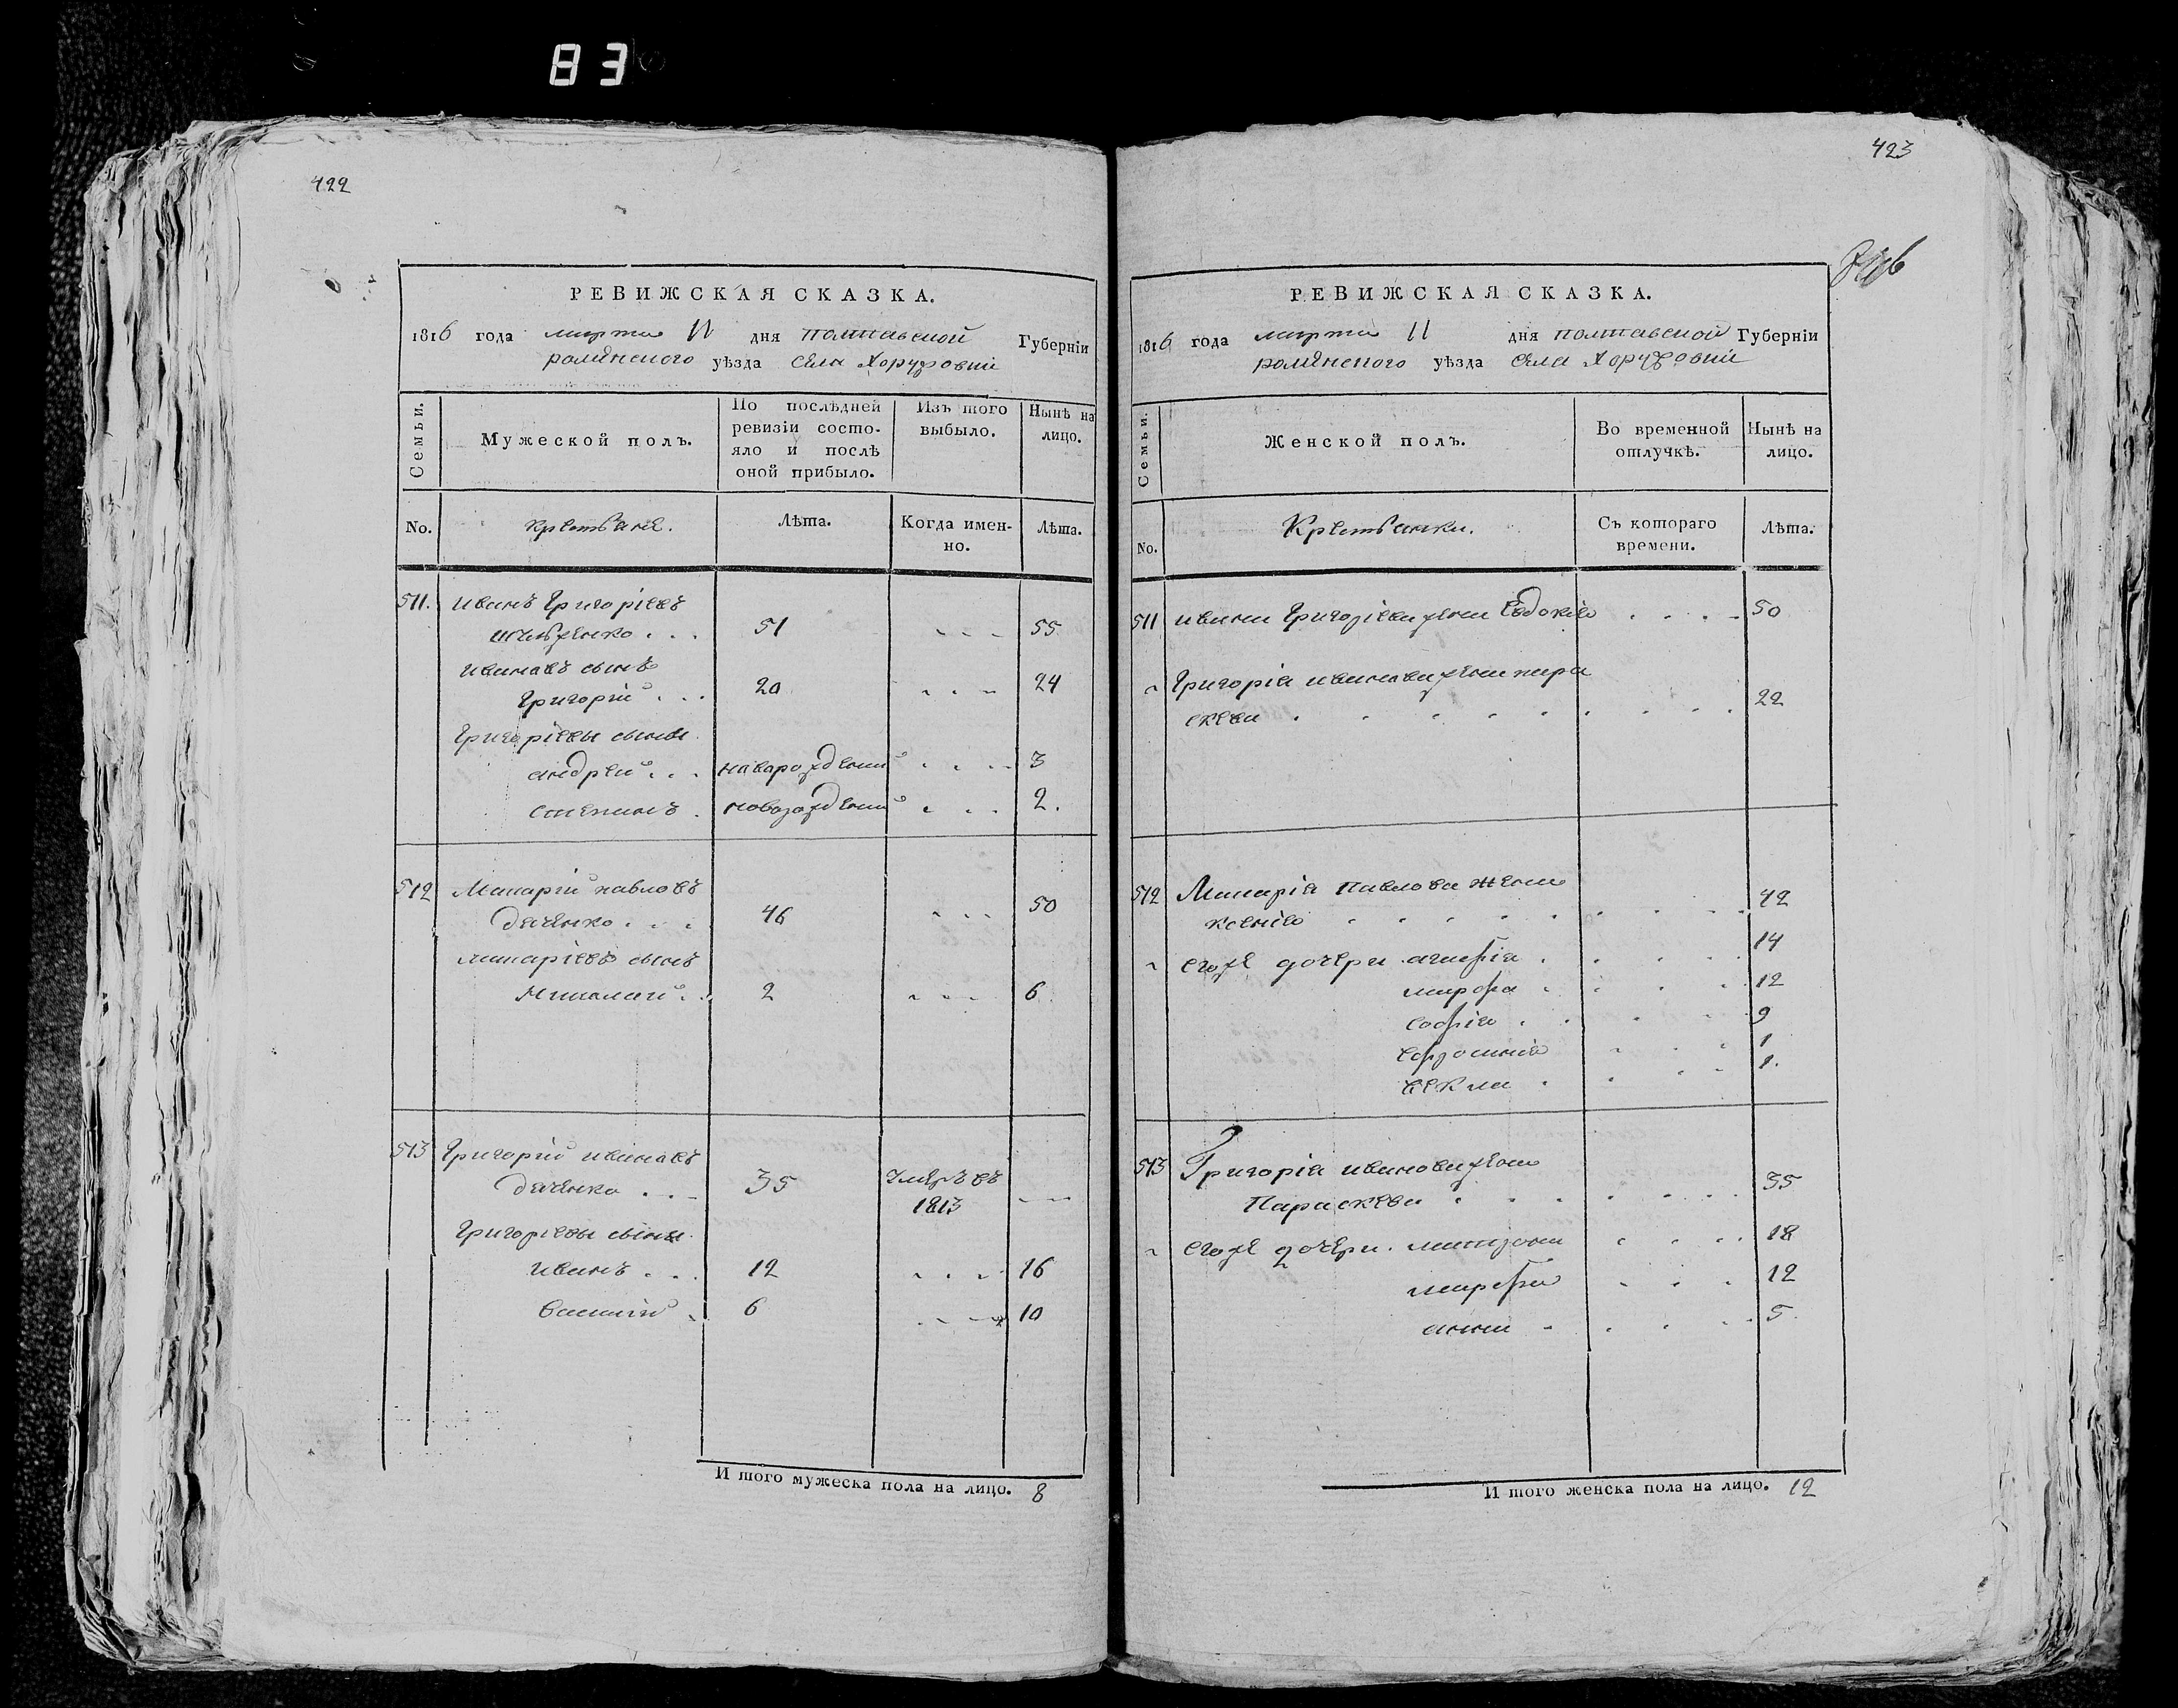 83
422
РЕВИЖСКАЯ СКАЗКА.
1816 года марта 11 дня полтавской Губерніи
роменского уѣзда села Хоружовки
Семьи.
Мужеской полъ.
По послѣдней
ревизіи состо-
яло и послѣ
оной прибыло.
Изъ того
выбыло.
Нынѣ на
лицо.
No.
крестьяне.
Лѣта.
Когда имен-
но.
Лѣта.
511. иванъ григоріевъ
51 55
ивановъ сынъ
григорій 20 24
григоріевы сыны
андрей новорожденый 3
степанъ новорожденый 2.
512 Макарій павловъ
дяченко 46 50
макаріевъ сынъ
Николай 2 6
513 григорій ивановъ
дяченко 35 умеръ въ
1813
григоріевы сыны
иванъ 12 16
василій 6 10
И того мужеска пола на лицо. 8
423
РЕВИЖСКАЯ СКАЗКА.
1816 года марта 11 дня полтавской Губерніи
роменского уѣзда села Хоружовки
Семьи.
Женской полъ.
Во временной
отлучкѣ.
Нынѣ на
лицо.
No.
Крестьянки.
Съ котораго
времени.
Лѣта.
511 ивана григоріева жена Евдокія 50
григорія иванова жена пара
скева 22
512 Макарія павлова жена
ксенія 42
егоже дочери агафія 14
марфа 12
софія 9
ефросинія 1
ѳекла 1.
513 Григорія иванова жена
Параскева 35
егоже дочери матрона 18
марфа 12
анна 5
И того женска пола на лицо. 12